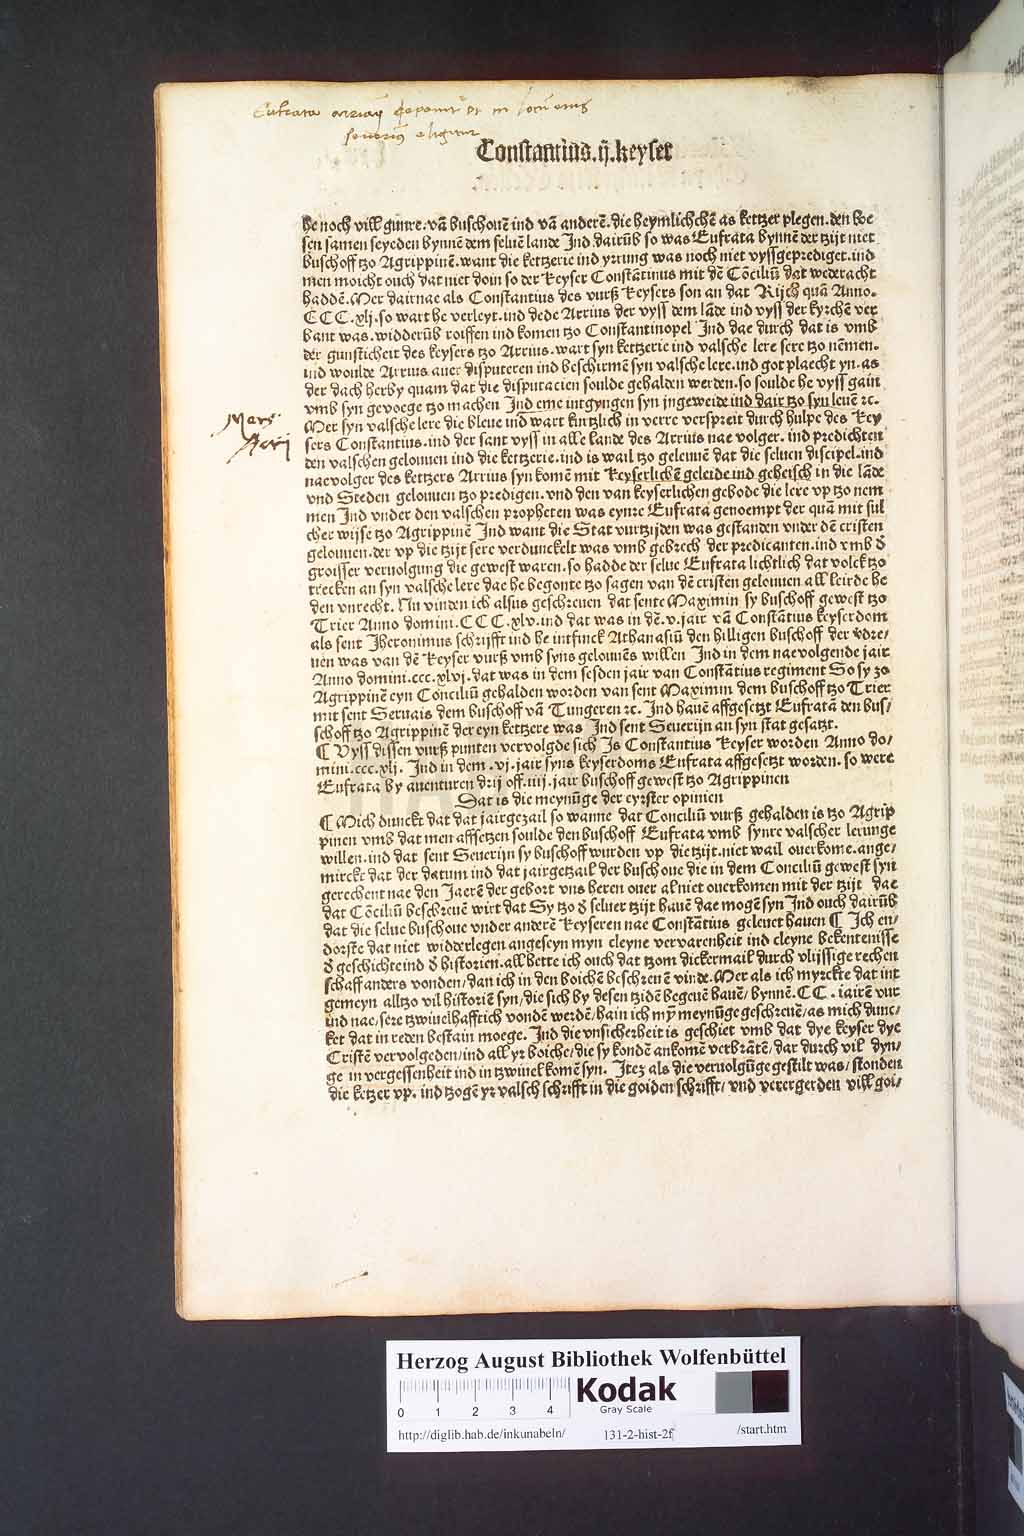 Eufrata arrianus deponitur et in locum eius
seuerinus eligitur
Constantius.ij.keyser
he noch vill gunre.vā buschouē ind vā anderē.die heymlichē as kettzer plegen.den boe
sen samen seyeden bynnē dem seluē lande Ind dairūb so was Eufrata bynnē der tzijt niet
buschoff tzo Agrippinē.want die ketzerie ind yrrung was noch niet vyssgeprediget.ind
men moicht ouch dat niet doin so der Keyser Constātinus mit dē Cōciliū dat wederacht
haddē.Mer dairnae als Constantius des vurß Keysers son an dat Rijch quā Anno.
CCC.xlj.so wart he verleyt.ind dede Arrius der vyss dem lāde ind vyss der kyrchē ver
bant was.widderūb roiffen ind komen tzo Constantinopel Ind dae durch dat is vmb
der gunsticheit des keysers tzo Arrius.wart syn kettzerie ind valsche lere sere tzo nēmen.
ind woulde Arrius auer disputeren ind beschirmē syn valsche lere.ind got plaecht yn.as
der dach herby quam dat die disputacien soulde gehalden werden.so soulde he vyss gain
vmb syn gevoege tzo machen Ind eme intgyngen syn jngeweide ind dair tzo syn leuē ꝛc.
Mers
Arrij
Mer syn valsche lere die bleue ind wart kurtzlich in verre verspreit durch hulpe des Key
sers Constantius.ind der sant vyss in alle lande des Arrius nae volger.ind predichten
den valschen gelouuen ind die kettzerie.ind is wail tzo geleuuē dat die seluen discipel.ind
naevolger des kettzers Arrius syn komē mit Keyserlichē geleide ind geheisch in die lāde
vnd Steden gelouuen tzo predigen.vnd den van keyserlichen gebode die lere vp tzo nem
men Ind vnder den valschen propheten was eynre Eufrata genoempt der quā mit sul
cher wijse tzo Agrippinē Ind want die Stat vurtzijden was gestanden vnder dē cristen
gelouuen.der vp die tzijt sere verdunckelt was vmb gebrech der predicanten.ind vmb d̄
groisser veruolgung die gewest waren.so hadde der selue Eufrata lichtlich dat volck tzo
trecken an syn valsche lere dae he begonte tzo sagen van dē cristen gelouuen all leirde he
den vnrecht. Nu vinden ich alsus geschreuen dat sente Maximin sy buschoff gewest tzo
Trier Anno domini.CCC.xlv.ind dat was in dē.v.jair vā Constātius keyserdom
als sent Jheronimus schrijfft ind he intfinck Athanasiū den hilligen buschoff der vdre/
uen was van dē Keyser vurß vmb syns gelouuēs willen Ind in dem naevolgende jair
Anno domini.ccc.xlvj.dat was in dem sesden jair van Constātius regiment So sy zo
Agrippinē eyn Conciliū gehalden worden van sent Maximin dem buschoff tzo Trier
mit sent Seruais dem buschoff vā Tungeren ꝛc. Ind hauē affgesetzt Eufratā den bus/
schoff tzo Agrippinē der eyn kettzere was Ind sent Seuerijn an syn stat gesatzt.
¶ Vyss dissen vurß punten vervolgde sich Is Constantius Keyser worden Anno do/
mini.ccc.xlj. Ind in dem .vj.jair syns keyserdoms Eufrata affgesetzt worden. so were
Eufrata by auenturen drij off.iiij.jair buschoff gewest tzo Agrippinen
Dat is die meynūge der eyrster opinien
¶ Mich dunckt dat dat jairgezail so wanne dat Conciliū vurß gehalden is tzo Agrip
pinen vmb dat men affsetzen soulde den buschoff Eufrata vmb synre valscher lerunge
willen.ind dat sent Seuerijn sy buschoff wurden vp die tzijt.niet wail ouerkome.ange/
mirckt dat der datum ind dat jairgetzail der buschoue die in dem Conciliū gewest syn
gerechent nae den Jaerē der gebort vns heren ouer al niet ouerkomen mit der tzijt dae
dat Cōciliū beschreuē wirt dat Sy tzo d̄ seluer tzijt hauē dae mogē syn Ind ouch dairūb
dat die selue buschoue vnder anderē Keyseren nae Constātius geleuet hauen ¶ Ich en/
dorste dat niet widderlegen angeseyn myn cleyne vervarenheit ind cleyne bekentenisse
d̄ geschichte ind d̄ historien.all hette ich ouch dat tzom dickermail durch vlijssige rechen
schaff anders vonden/dan ich in den boichē beschreuē vinde.Mer als ich myrckte dat int
gemeyn alltzo vil historiē syn/die sich by desen tzidē begeuē hauē/bynnē.CC.iairē vur
ind nae/sere tzwiuelhafftich vondē werdē/hain ich mȳ meynūge geschreuē/as mich dunc/
ket dat in reden bestain moege. Ind die vnsicherheit is geschiet vmb dat dye keyser dye
Cristē vervolgeden/ind all yr boiche/die sy kondē ankomē verbrātē/dar durch vil dyn/
ge in vergessenheit ind in tzwiuel komē syn. Itez als die veruolgūge gestilt was/stonden
die ketzer vp. ind tzogē yr valsch schrifft in die goiden schrifft/ vnd verergerden vill goi/
Herzog August Bibliothek Wolfenbüttel
0 1 2 3 4
Kodak
Gray Scale
http://diglib.hab.de/inkunabeln/ 131-2-hist-2f /start.htm